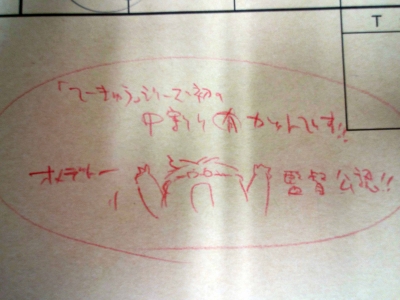 T
「てーきゅう」シリーズ初の
中割り有カットです!!
オメデトー 監督公認!!